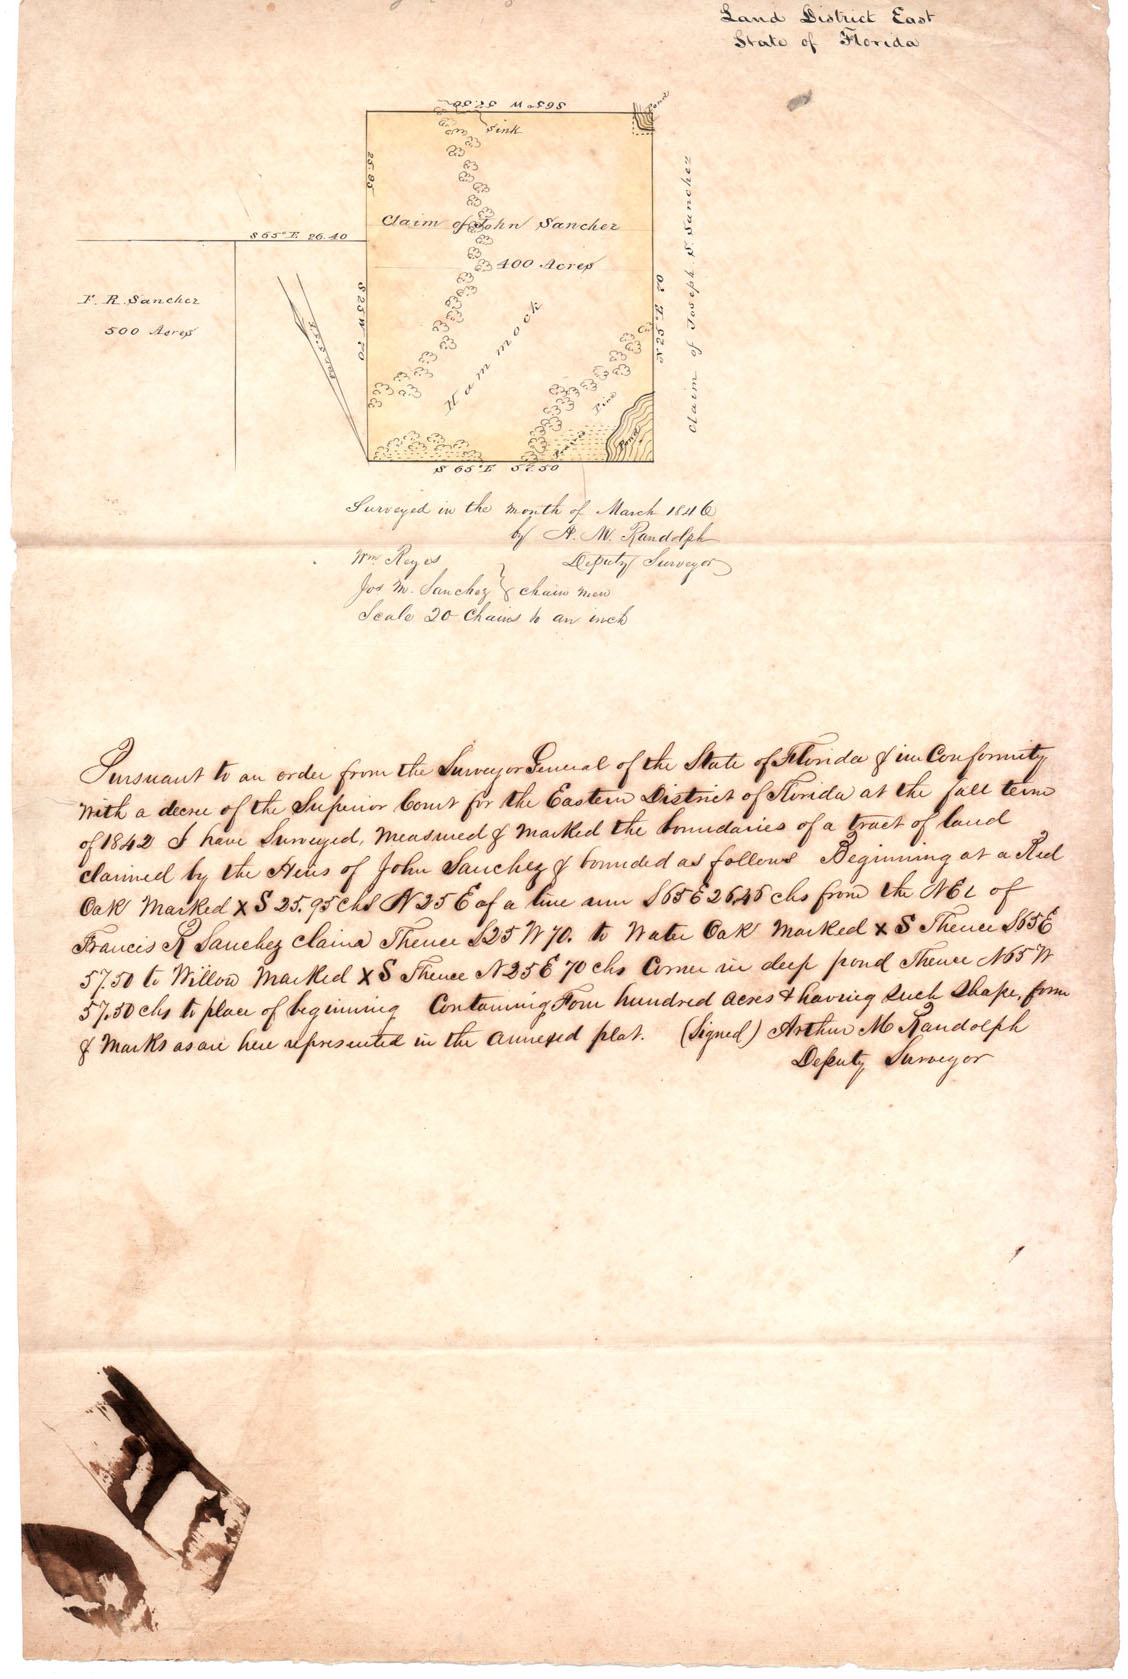 Land District East
State of Florida
N 65° W 57.50
Pond
Sink
25.95
Claim of John Sanchez
S 65° E 26.40
400 Acres
F. R. Sanchez
500 Acres
S 25 W 70
N 25 E 70
Claim of Joseph S. Sanchez
Hammock
Pine
Pond
S 65° E 57.50
Surveyed in the month of March 1846
by A. M. Randolph
Wm. Reyes
Deputy Surveyor
Jos M. Sanchez } chain men
Scale 20 Chains to an inch
Pursuant to an order from the Surveyor General of the State of Florida & in Conformity
with a decree of the Superior Court for the Eastern District of Florida at the fall term
of 1842 I have Surveyed, Measured & Marked the boundaries of a tract of land
claimed by the Heirs of John Sanchez & bounded as follows Beginning at a Red
Oak Marked X S 25.95 chs N 25 E of a line run S65E 26,45 chs from the NE of
Francis R Sanchez claim Thence S25 W 70. to Water Oak Marked X S Thence S65E
57.50 to Willow Marked X S Thence N 25 E 70 chs Corner in deep pond Thence N65 W
57.50 chs to place of beginning Containing Four hundred acres & having such shape, form
& Marks as are here represented in the annexed plat. (Signed) Arthur M Randolph
Deputy Surveyor